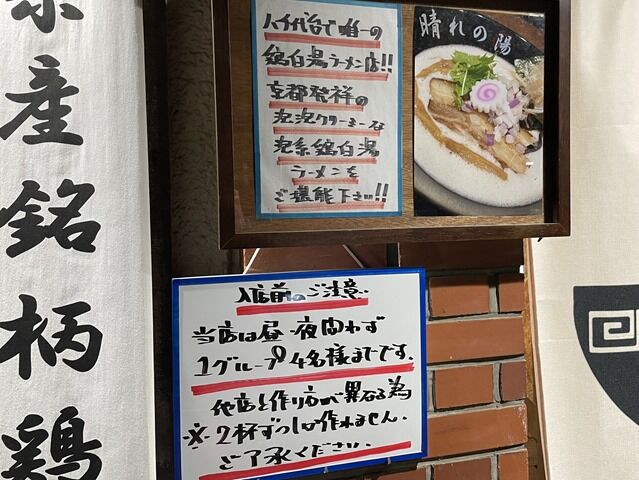 産銘柄鶏
八千代台で唯一の
鶏白湯ラーメン店!!
京都発祥の
泡泡クリーミーな
泡系鶏白湯
ラーメンを
ご堪能下さい!!
晴れの陽
入店前のご注意
当店は昼・夜問わず
1グループ4名様までです.
他店と作り方が異なる為
※2杯ずつしか作れません.
ご了承ください.